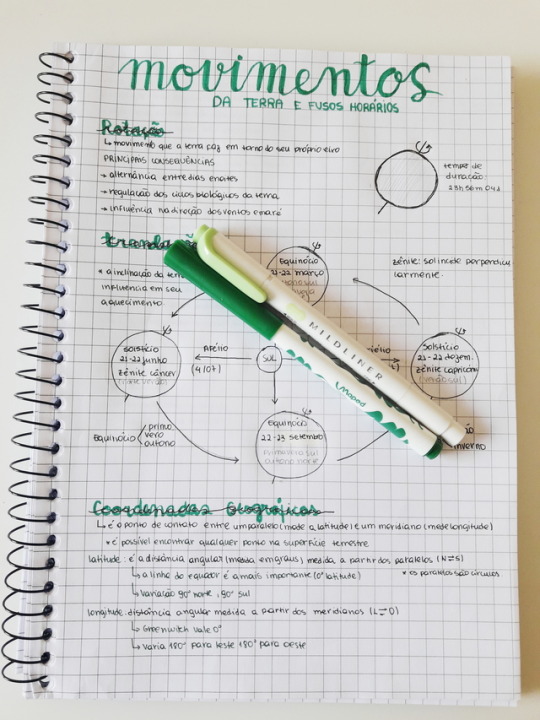 movimentos
DA TERRA E FUSOS HORÁRIOS
Rotação
↳ movimento que a terra faz em torno do seu próprio eixo
PRINCIPAIS CONSEQUÊNCIAS
→ alternância entre dias e noites
→ regulação dos ciclos biológicos da terra
→ influência na direção dos ventos e maré
tempo de
duração
23h 56m 04s
* a inclinação da terra
influencia em seu
aquecimento
Equinócio
21-22 março
zênite: sol incide perpendicu
larmente.
Solstício
21-22 junho
zênite câncer
Afélio
(4/07)
SOL
Solstício
21-22 dezem.
zênite capricórn
MILDLINER
Maped
Equinócio
22-23 setembro
primavera sul
outono norte
Equinócio
prima
vera
outono
inverno
Coordenadas Geográficas
↳ é o ponto de contato entre um paralelo (mede a latitude) e um meridiano (mede longitude)
* é possível encontrar qualquer ponto na superfície terrestre
latitude: é a distância angular (medida em graus) medida a partir dos paralelos (N⇌S)
↳ a linha do equador é a mais importante (0° latitude)
* os paralelos são círculos
↳ variação 90° norte, 90° sul
longitude: distância angular medida a partir dos meridianos (L⇌O)
↳ Greenwitch vale 0°
↳ varia 180° para leste 180° para oeste